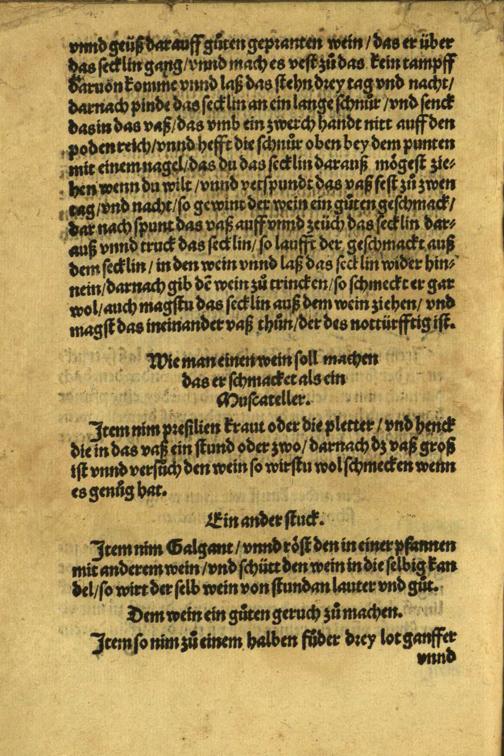 vnnd geüß darauff gůten gepranten wein / das er über
das secklin gang / vnnd mach es vest zů das kein tampff
daruõn komme vnnd laß das stehn drey tag vnd nacht /
darnach pinde das secklin an ein lange schnůr / vnd senck
das in das vaß / das vmb ein zwerch handt nitt auff den
poden reich / vnnd hefft die schnůr oben bey dem punten
mit einem nagel / das du das secklin darauß mögest zie-
hen wenn du wilt / vnnd verspundt das vaß fest zů zwen
tag / vnd nacht / so gewint der wein ein gůten geschmack /
dar nach spunt das vaß auff vnnd zeüch das secklin dar-
auß vnnd truck das secklin / so laufft der geschmackt auß
dem secklin / in den wein vnnd laß das secklin wider hin-
nein / darnach gib dē wein zů trincken / so schmeckt er gar
wol / auch magstu das secklin auß dem wein ziehen / vnd
magst das in ein ander vaß thůn / der des nottürfftig ist.
Wie man einen wein soll machen
das er schmacket als ein
Muscateller.
Item nim presilien kraut oder die pletter / vnd henck
die in das vaß ein stund oder zwo / darnach dz vaß groß
ist vnnd versůch den wein so wirstu wol schmecken wenn
es genůg hat.
Ein ander stuck.
Item nim Galgant / vnnd röst den in einer pfannen
mit anderem wein / vnd schütt den wein in die selbig kan
del / so wirt der selb wein von stundan lauter vnd gůt.
Dem wein ein gůten geruch zů machen.
Item so nim zů einem halben fůder drey lot ganffer
vnnd